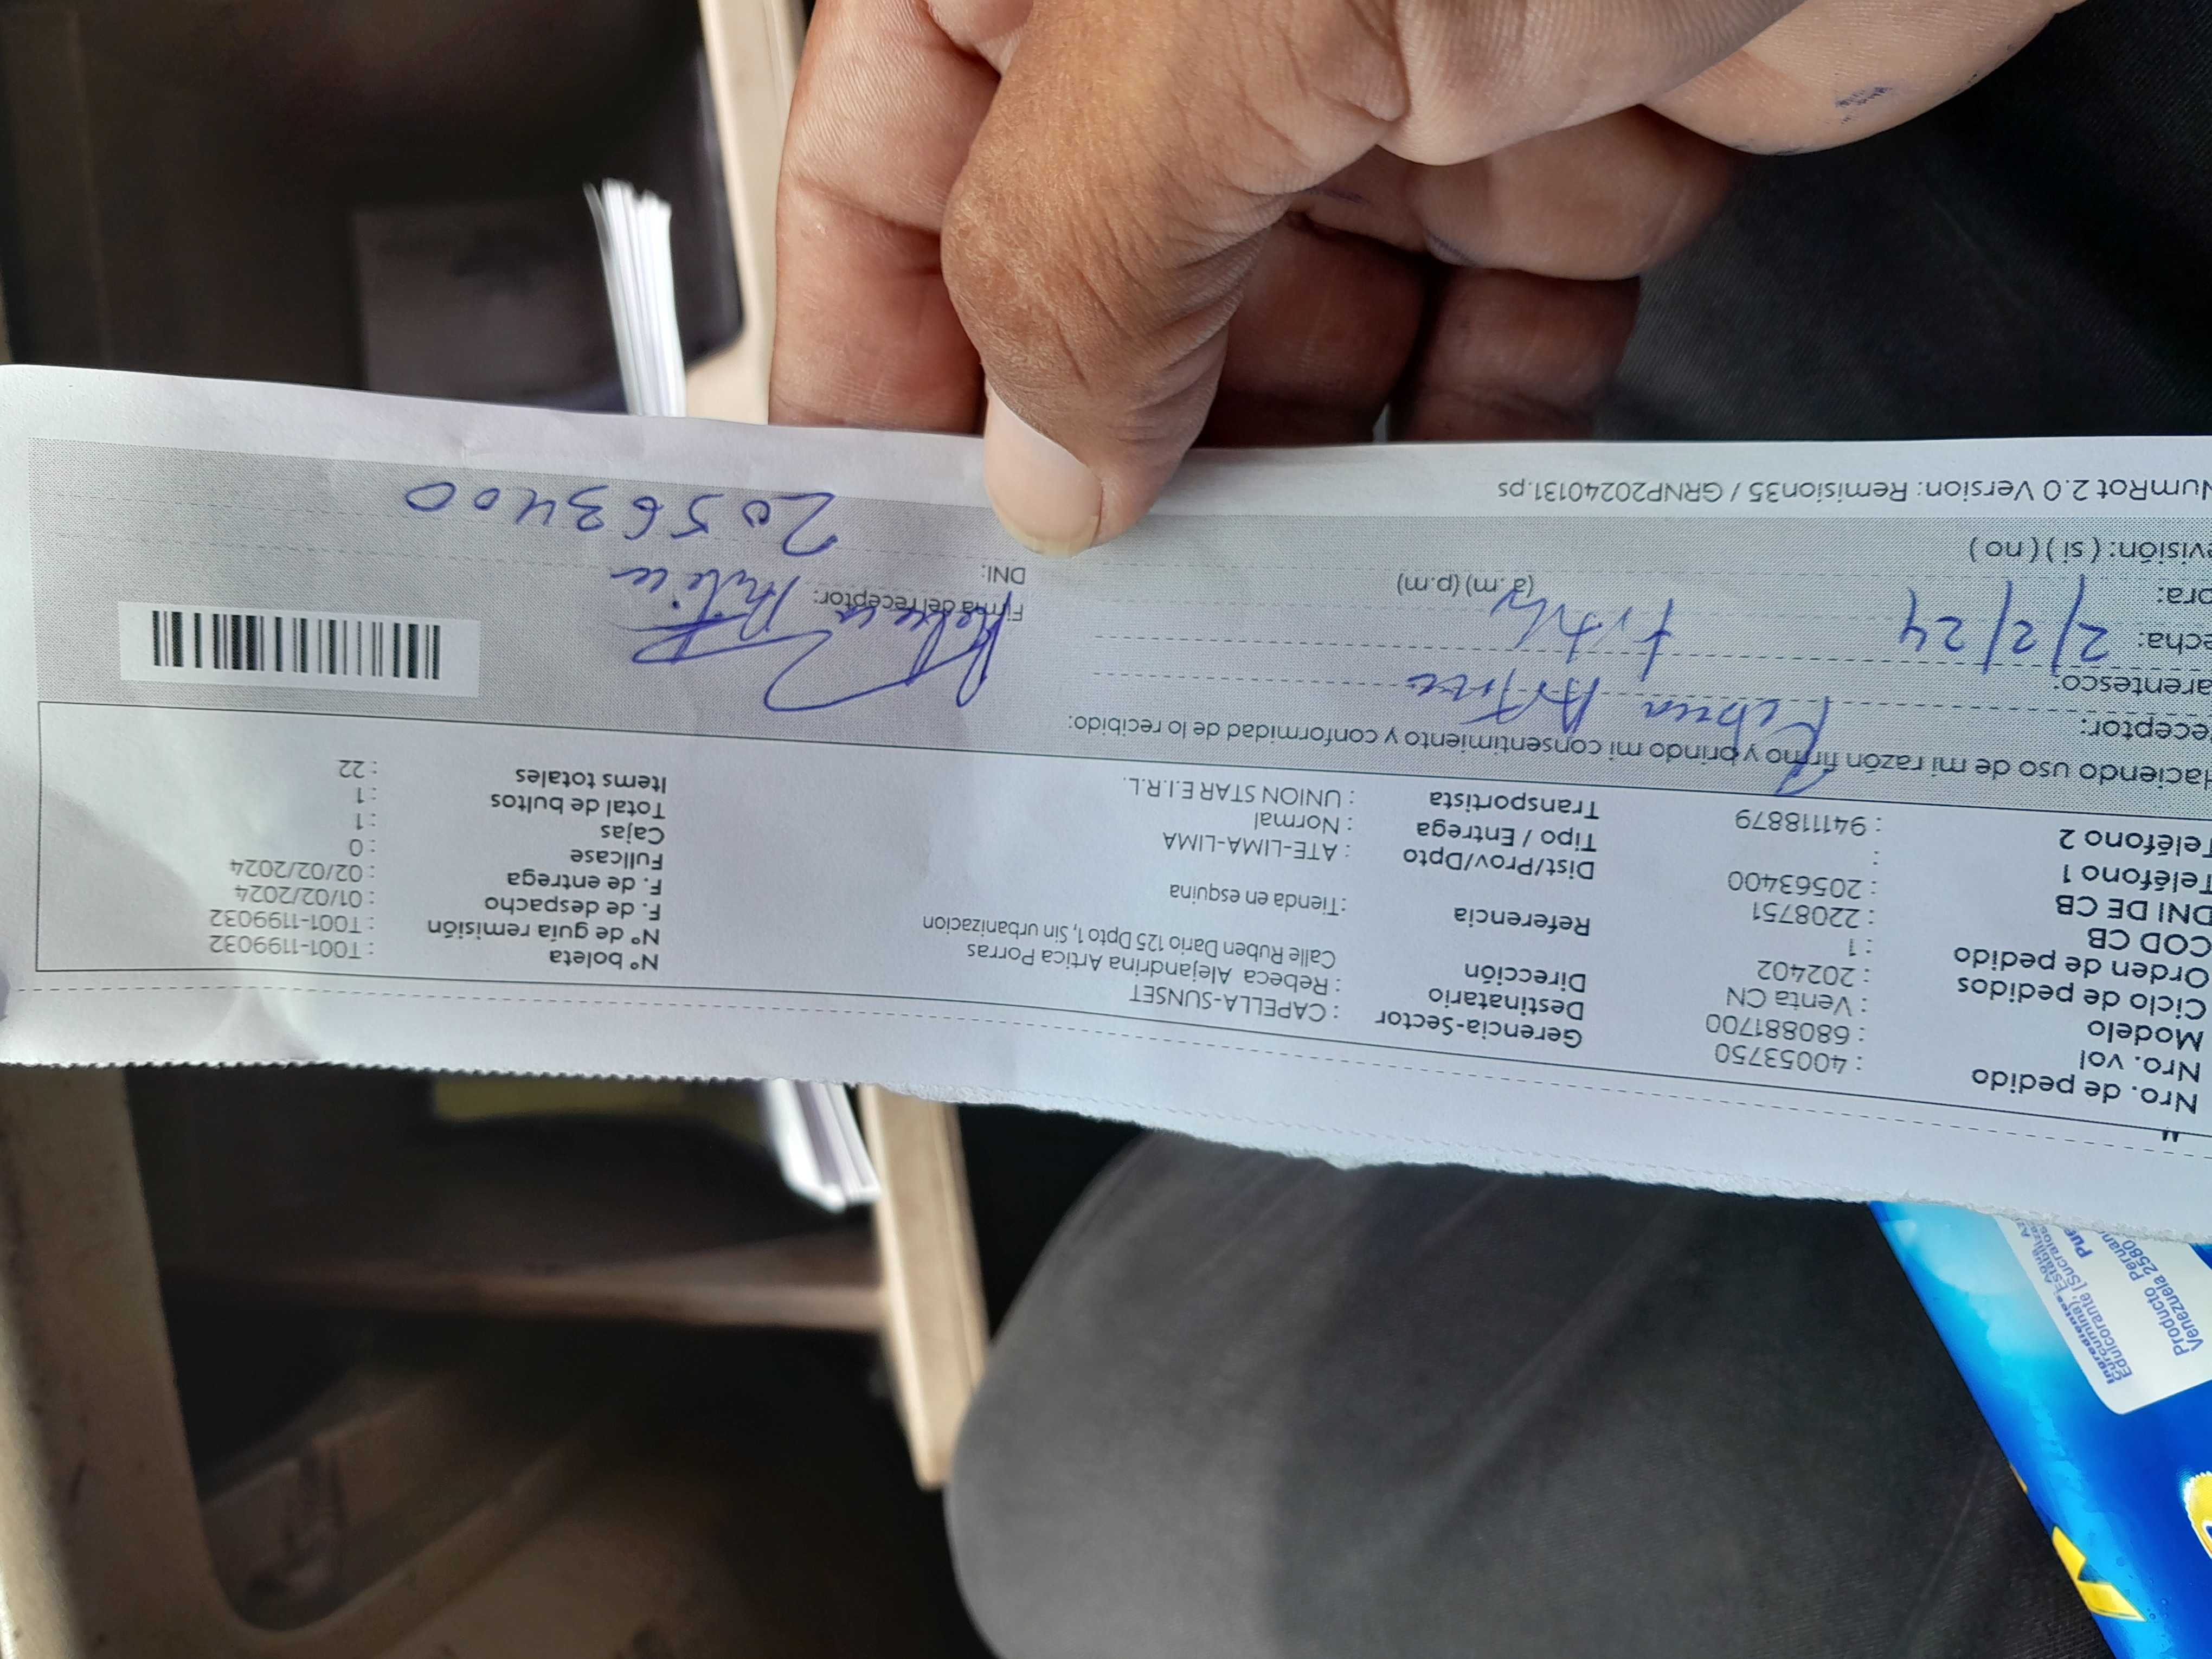 Nro. de pedido : 40053750
Nro. vol : 680881700
Modelo : Venta CN
Ciclo de pedidos : 202402
Orden de pedido : 1
COD CB : 2208751
DNI DE CB : 20563400
Teléfono 1 :
Teléfono 2 : 941118879
Gerencia-Sector : CAPELLA-SUNSET
Destinatario : Rebeca Alejandrina Artica Porras
Dirección Calle Ruben Dario 125 Dpto 1, Sin urbanizacion
Referencia :Tienda en esquina
Dist/Prov/Dpto : ATE-LIMA-LIMA
Tipo / Entrega : Normal
Transportista : UNION STAR E.I.R.L.
Nº boleta : T001-1199032
Nº de guía remisión : T001-1199032
F. de despacho : 01/02/2024
F. de entrega : 02/02/2024
Fullcase : 0
Cajas : 1
Total de bultos : 1
Items totales : 22
Haciendo uso de mi razón firmo y brindo mi consentimiento y conformidad de lo recibido:
eceptor: Rebeca Artica
arentesco:
echa: 2/2/24
ora: (a.m) (p.m)
evisión: ( si ) ( no )
Firma del receptor:
Rebeca Artica
DNI: 20563400
NumRot 2.0 Version: Remision35 / GRNP20240131.ps
Producto Peruan
Venezuela 2580